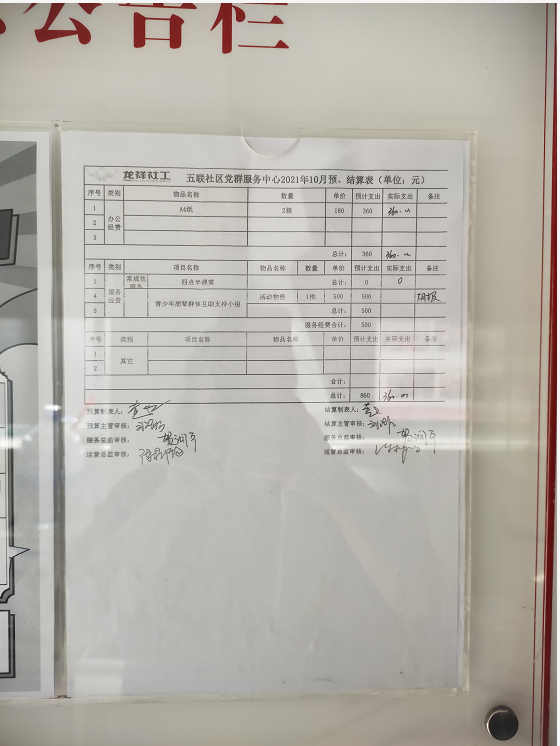 公告栏
龙祥社工 五联社区党群服务中心2021年10月预、结算表（单位：元）
序号 类别 物品名称 数量 单价 预计支出 实际支出 备注
1 办公经费 A4纸 2箱 180 360 360.00
2
3
总计： 360 360.00
序号 类别 项目名称 物品名称 数量 单价 预计支出 实际支出 备注
1 服务经费 常规性服务 四点半课堂 总计： 0 0
4 青少年朋辈群体互助支持小组 活动物资 1批 500 500
5 总计： 500
服务经费合计： 500
序号 类别 项目名称 物品名称 单价 预计支出 实际支出 备注
1 其它
2
合计：
总计： 860 360.00
预算制表人： 结算制表人：
预算主管审核： 结算主管审核：
服务总监审核： 服务总监审核：
运营总监审核： 运营总监审核：